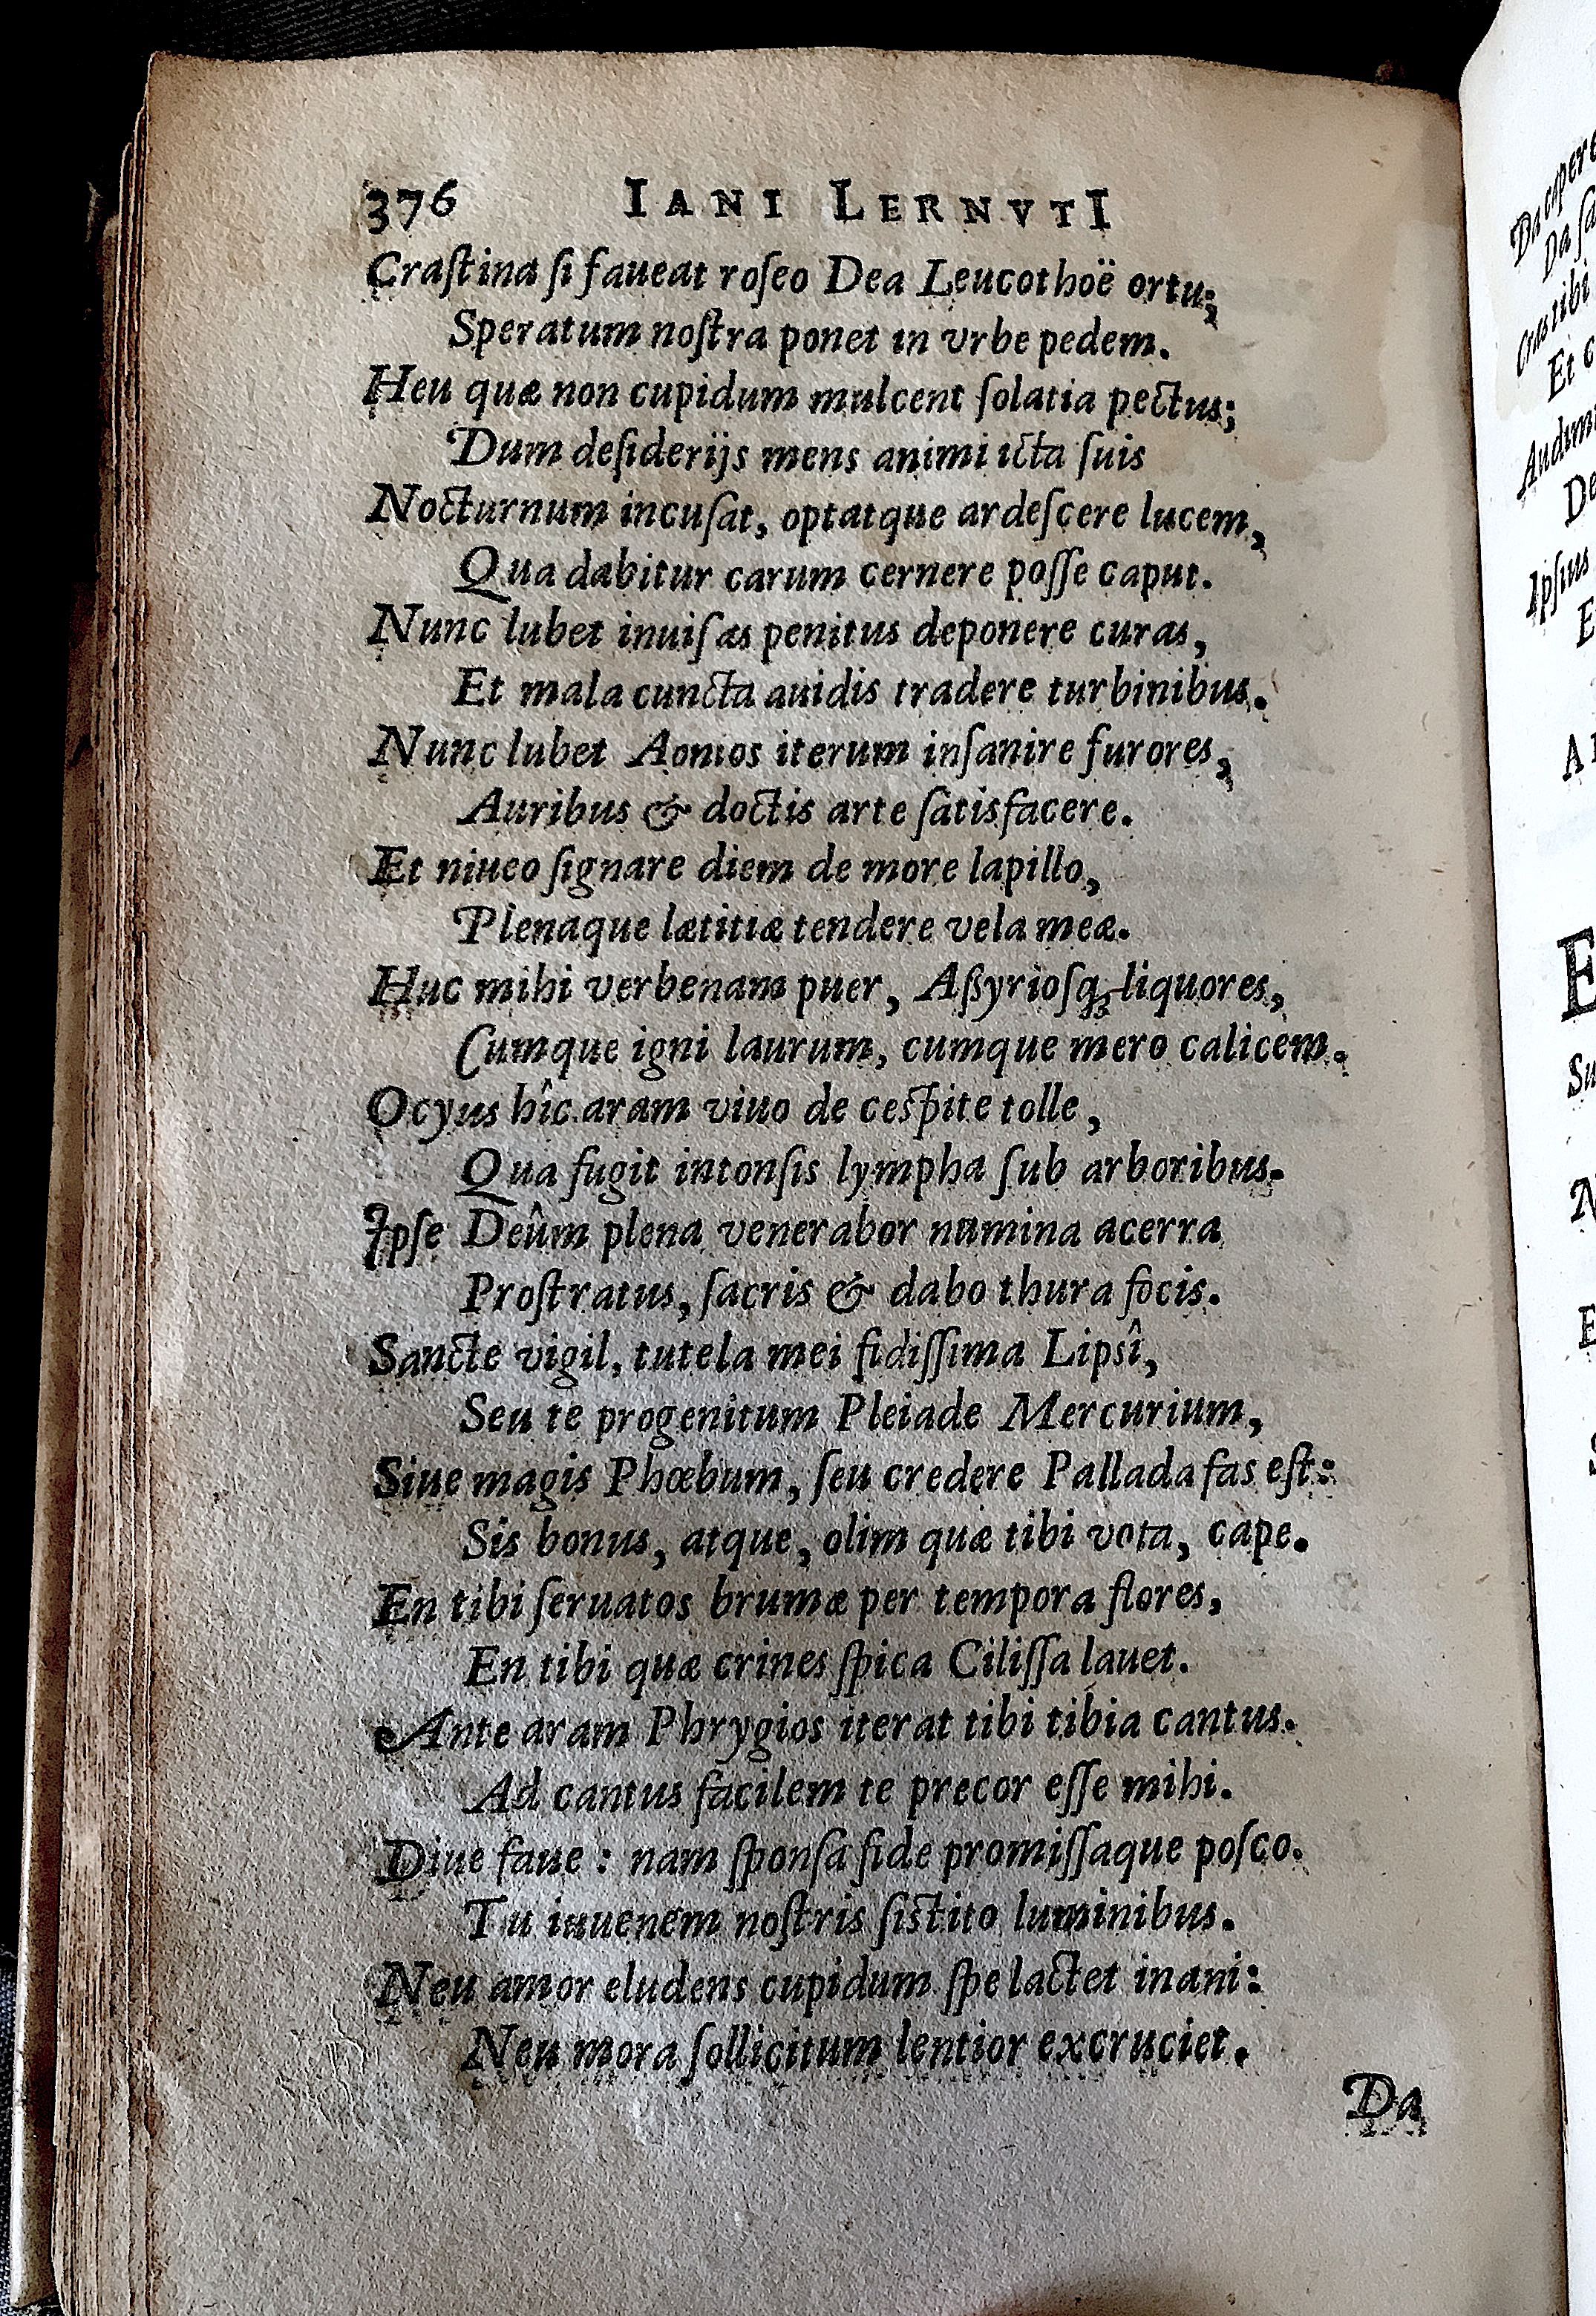 376 IANI LERNVTI
Craſtina ſi faueat roſeo Dea Leucothoë ortu;
Speratum noſtra ponet in vrbe pedem.
Heu quæ non cupidum mulcent ſolatia pectus;
Dum deſiderijs mens animi icta ſuis
Nocturnum incuſat, optatque ardeſcere lucem,
Qua dabitur carum cernere poſſe caput.
Nunc lubet inuiſas penitus deponere curas,
Et mala cuncta auidis tradere turbinibus.
Nunc lubet Aonios iterum inſanire furores,
Auribus & doctis arte ſatisfacere.
Et niueo ſignare diem de more lapillo,
Plenaque lætitiæ tendere vela meæ.
Huc mihi verbenam puer, Aßyrioſq; liquores,
Cumque igni laurum, cumque mero calicem.
Ocyus hîc aram viuo de ceſpite tolle,
Qua fugit intonſis lympha ſub arboribus.
Ipſe Deûm plena venerabor numina acerra
Proſtratus, ſacris & dabo thura focis.
Sancte vigil, tutela mei fidiſſima Lipsî,
Seu te progenitum Pleiade Mercurium,
Siue magis Phœbum, ſeu credere Pallada fas eſt:
Sis bonus, atque, olim quæ tibi vota, cape.
En tibi ſeruatos brumæ per tempora flores,
En tibi quæ crines ſpica Ciliſſa lauet.
Ante aram Phrygios iterat tibi tibia cantus.
Ad cantus facilem te precor eſſe mihi.
Diue faue: nam ſponſa fide promiſſaque poſco.
Tu iuuenem noſtris ſiſtito luminibus.
Neu amor eludens cupidum ſpe lactet inani:
Neu mora ſollicitum lentior excruciet.
Da
Da
Et
De
Ipſius
E
Su